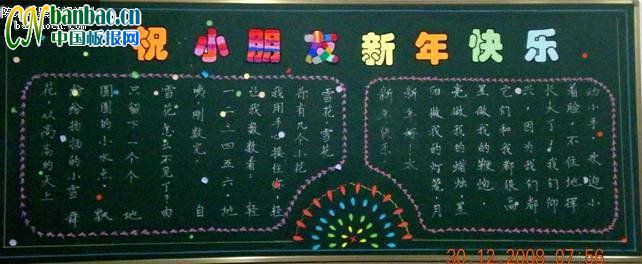 banbac.cn
CN中国板报网
祝小朋友新年快乐
雪花,雪花
你有几个小花
我用手心接住你,轻
让我数数看:轻
一二三四五六,地
咦,刚数完,自
雪花怎么不见了?由
只留下一个个地
圆圆的小水点。飘
纷纷扬扬的小雪舞
花,从高高的天上
新年快乐
新年好!太
阳做我的灯笼,月
亮做我的蜡烛,星
星做我的鞭炮.
它们和我都很高
兴,因为我们都
长大了!我们仰
着脸,不住地挥
动小手,欢迎小
30.12.2008 07:56